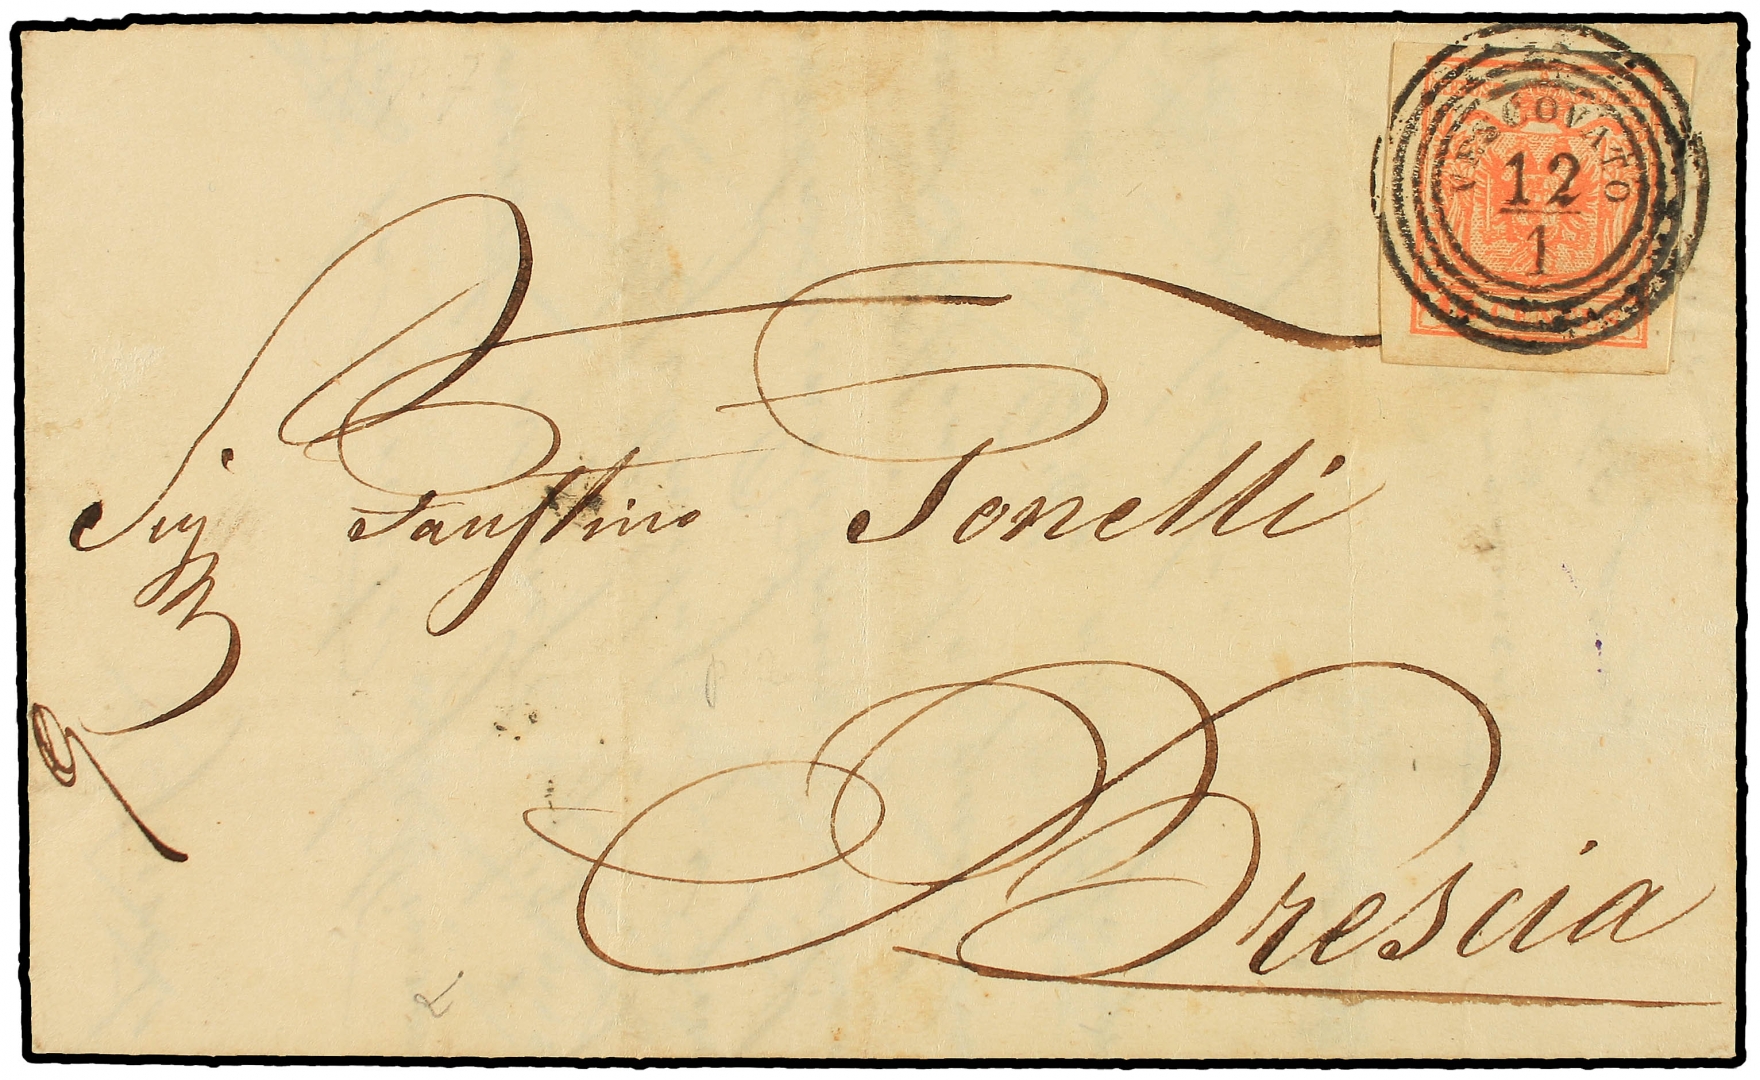 VESCOVATO
12
1
CENTES
Sig Faustino Tonelli
Brescia